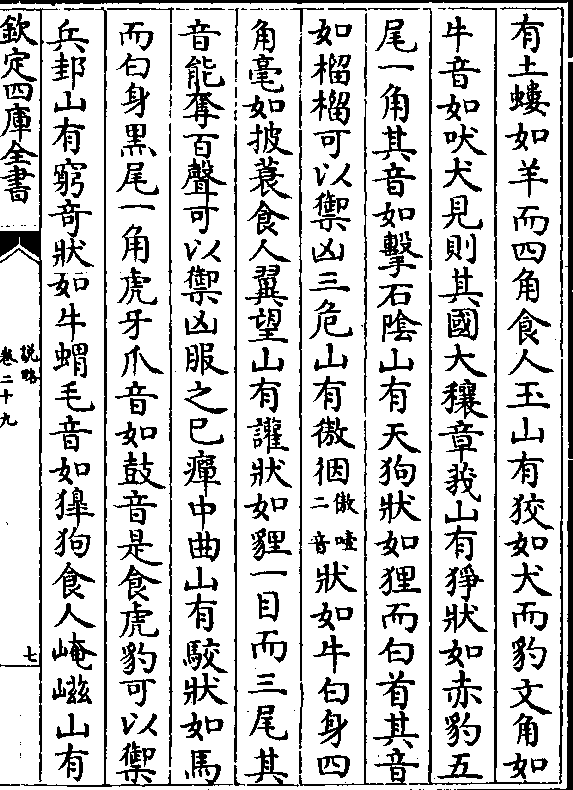 有土螻如羊而四角食人玉山有狡如犬而豹文角如
牛音如吠犬見則其國大穰章莪山有猙狀如赤豹五
尾一角其音如擊石陰山有天狗狀如狸而白首其音
如榴榴可以禦凶三危山有傲𢓨二音傲噎狀如牛白身四
角毫如披蓑食人翼望山有讙狀如貍一目而三尾其
音能奪百聲可以禦凶服之已癉中曲山有駮狀如馬
而白身黑尾一角虎牙爪音如鼓音是食虎豹可以禦
兵邽山有窮奇狀如牛蝟毛音如獋狗食人崦嵫山有
欽定四庫全書
說略
卷二十九
七